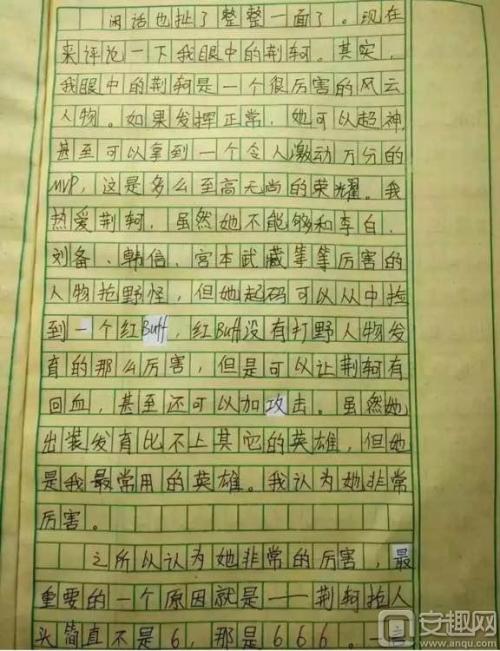 闲话也扯了整整一面了。现在
来评论一下我眼中的荆轲。其实,
我眼中的荆轲是一个很厉害的风云
人物。如果发挥正常,她可以超神,
甚至可以拿到一个令人激动万分的
MVP,这是多么至高无尚的荣耀。我
热爱荆轲,虽然她不能够和李白、
刘备、韩信、宫本武藏等等厉害的
人物抢野怪,但她起码可以从中捡
到一个红Buff,红Buff没有打野人物发
育的那么厉害,但是可以让荆轲有
回血,甚至还可以加攻击。虽然她
出装发育比不上其它的英雄,但她
是我最常用的英雄。我认为她非常
厉害。
之所以认为她非常的厉害,最
重要的一个原因就是——荆轲抢人
头简直不是6,那是666。一
安趣网
www.anqu.com